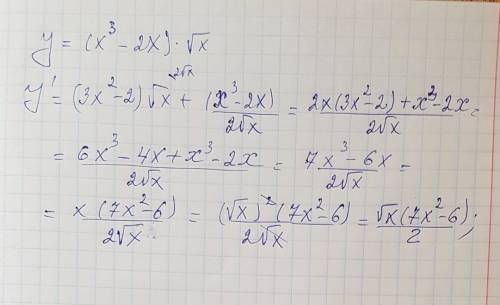 y = (x³ − 2x) · √x
y' = (3x² − 2)√x + (x³ − 2x)/(2√x) = (2x(3x² − 2) + x³ − 2x)/(2√x) =
= (6x³ − 4x + x³ − 2x)/(2√x) = (7x³ − 6x)/(2√x) =
= x(7x² − 6)/(2√x) = (√x)²(7x² − 6)/(2√x) = √x(7x² − 6)/2;